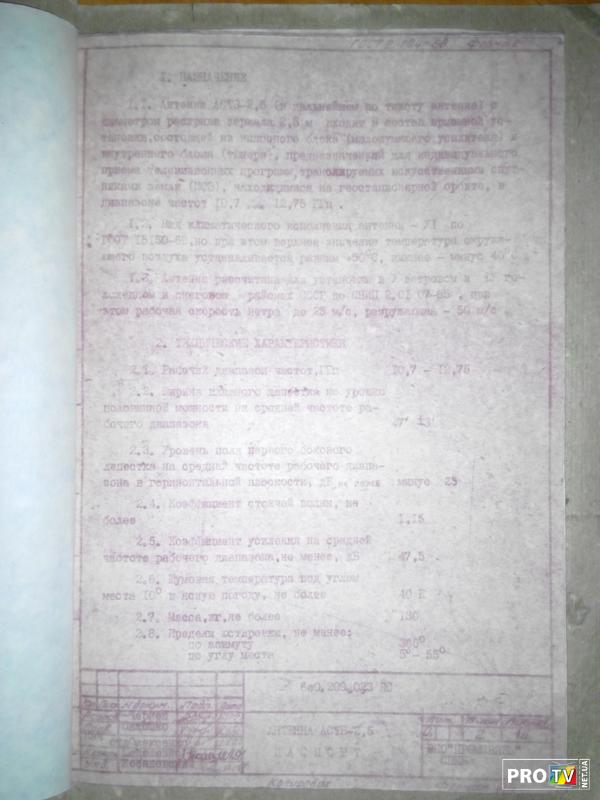 I. НАЗНАЧЕНИЕ
I.I. Антенна АСТВ-2,5 (в дальнейшем по тексту антенна) с
диаметром раскрыва зеркала 2,5 м входит в состав приемной ус-
тановки, состоящей из наружного блока (малошумящего усилителя) и
внутреннего блока (тюнера), предназначенной для индивидуального
приема телевизионных программ, транслируемых искусственными спут-
никами земли (ИСЗ), находящимися на геостационарной орбите, в
диапазоне частот I0,7 ... I2,75 ГГц.
I.2. Вид климатического исполнения антенны - УI по
ГОСТ I5I50-69, но при этом верхнее значение температуры окружа-
ющего воздуха устанавливается равным +50°С, нижнее - минус 40°
I.3. Антенна рассчитана для установки в ветровом и го-
лоледном и снеговом районах СССР по СНИП 2.0I.07-85, при
этом рабочая скорость ветра до 25 м/с, разрушающая - 50 м/с
2. ТЕХНИЧЕСКИЕ ХАРАКТЕРИСТИКИ
2.I. Рабочий диапазон частот, ГГц I0,7 - I2,75
2.2. Ширина главного лепестка по уровню
половинной мощности на средней частоте ра-
бочего диапазона
2.3. Уровень поля первого бокового
лепестка на средней частоте рабочего диапа-
зона в горизонтальной плоскости, дБ, не более минус 25
2.4. Коэффициент стоячей волны, не
более I,I5
2.5. Коэффициент усиления на средней
частоте рабочего диапазона, не менее, дБ 47,5
2.6. Шумовая температура под углом
места I0° в ясную погоду, не более 40 К
2.7. Масса, кг, не более I30
2.8. Пределы юстировки, не менее:
по азимуту 360°
по углу места 5° - 55°
АНТЕННА АСТВ-2,5
ПАСПОРТ
Копировал
PRO TV
NET.UA